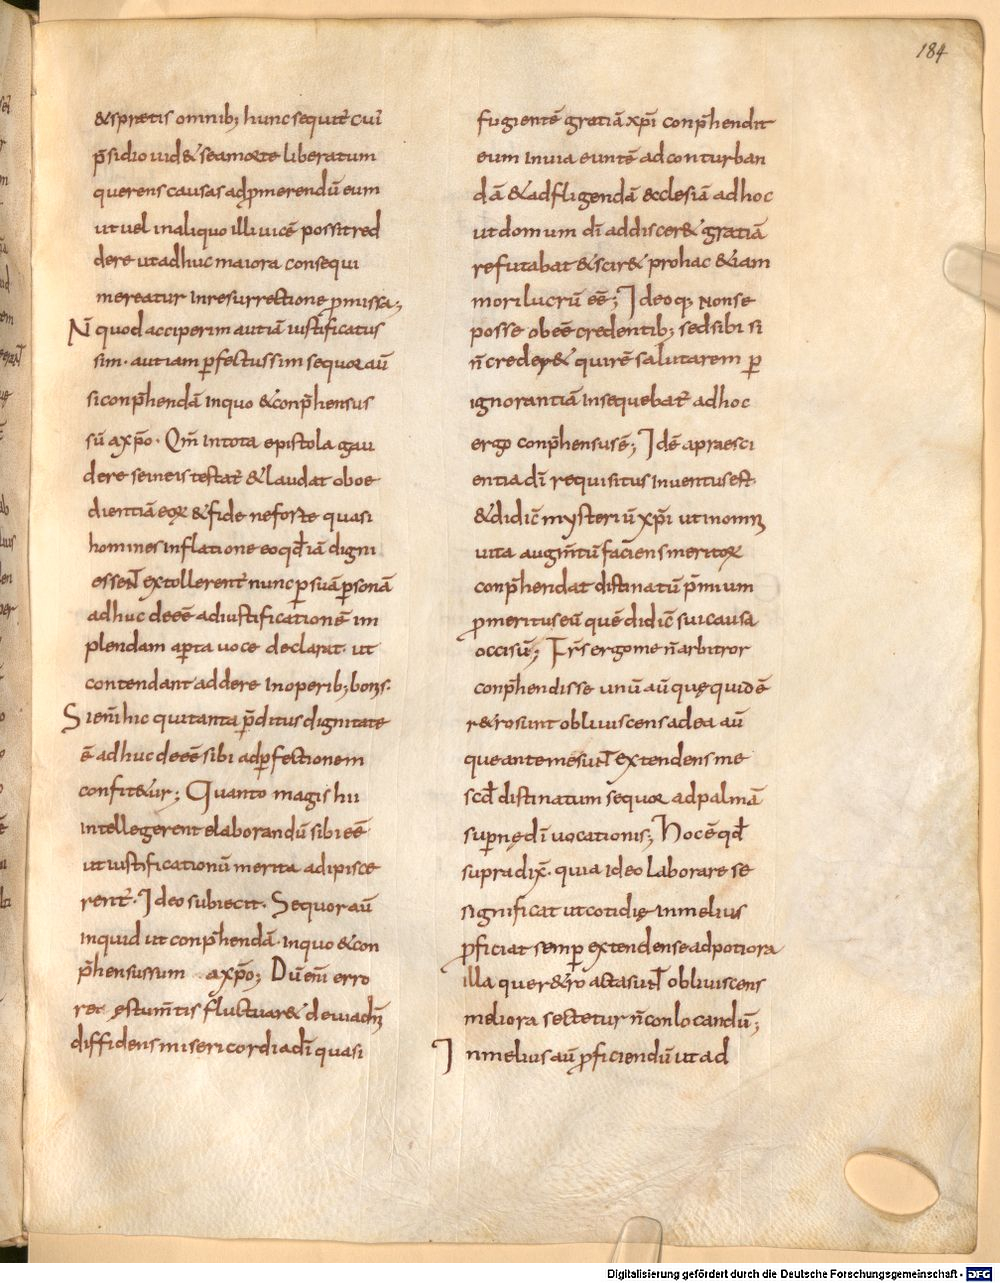 184
&spretis omnib; hunc sequit᷑ cui᷑
p̄sidio uid& se a morte liberatum
querens causas ad ꝓmerendū eum
ut uel in aliquo illi uicē possit red
dere ut adhuc maiora consequi
mereatur in resurrectione ꝓmissa;
N̄ quod acciperim aut iā iustificatus
sim· aut iam ꝑfectus sim sequor aū
si conp̄hendā in quo &conp̄hensus
sū a xp̄o· Qm̄ in tota epistola gau
dere se in eis testat᷑ &laudat oboe
dientiā eoꝝ &fide ne forte quasi
homines inflatione eo qd̄ iā digni
essent extollerent᷑ nunc ꝑ suā ꝑsonā
adhuc deeē ad iustificationē im
plendam aꝑta uoce declarat· ut
contendant addere in operib; bonis·
Si enī hic qui tanta p̄ditus dignitate
ē adhuc deeē sibi ad ꝑfectionem
confit&ur; Quanto magis hii
intellegerent elaborandū sibi eē
ut iustificationū merita adipisce
rent᷑· Ideo subiecit· Sequor aū
inquid ut conp̄hendā· in quo &con
p̄hensus sum a xp̄o; Dū enī erro
re &estum̄tis fluctuar& deuiadm̄
diffidens misericordia dī quasi
fugientē gratiā xp̄i conp̄hendit
eum in uia euntē ad conturban
dā &adfligendā ecclesiā ad hoc
ut domum dī addiscer& gratiā
refutabat &scir& pro hac &iam
mori lucrū eē; Ideoq; non se
posse obeē credentib; sed sibi si
n̄ creder& qui rē salutarem ꝑ
ignorantiā insequebat᷑ ad hoc
ergo conp̄hensus ē; Idē a praesci
entia dī requisitus inuentus est·
&didic̄ mysteriū xp̄i ut in omm̄
uita augm̄tū faciens meritoꝝ
conp̄hendat distinatū p̄mium
ꝓmeritus eū quē didic̄ sui causa
occisū; Fr̄s ergo me n̄ arbitror
conp̄hendisse unū aū quę quidē
r&ro sunt obliuiscens ad ea aū
que ante me sunt extendens me
scd̄ distinatum sequor ad palmā
suꝑnę dī uocationis; Hoc ē qd̄
supra dix̄· quia ideo laborare se
significat ut cotidię in melius
ꝓficiat semꝑ extendens e ad potiora
illa quer& ro acta sunt obliuiscens
meliora sectetur n̄ conlocandū;
In melius aū ꝓficiendū ut ad
Digitalisierung gefördert durch die Deutsche Forschungsgemeinschaft - DFG